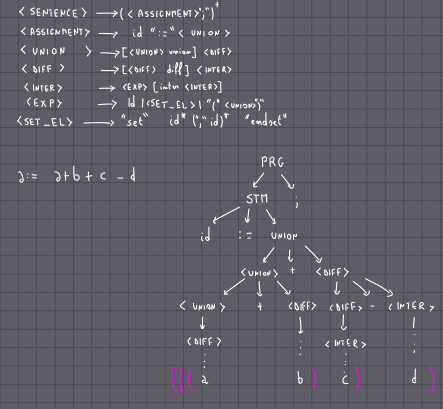 <SENTENCE> → (<ASSIGNMENT>";")⁺
<ASSIGNMENT> → id ":=" <UNION>
<UNION> → [<UNION> union] <DIFF>
<DIFF> → [<DIFF> diff] <INTER>
<INTER> → <EXP> [inter <INTER>]
<EXP> → Id |<SET_EL> | "(" <UNION>")"
<SET_EL> → "set" id* ("," id)* "endset"
PRG
a:= a+b+c-d
STM ;
id := UNION
<UNION> + <DIFF>
<UNION> + <DIFF> <DIFF> - <INTER>
<DIFF> ⋮ <INTER> ⋮
(((a b) c) d)